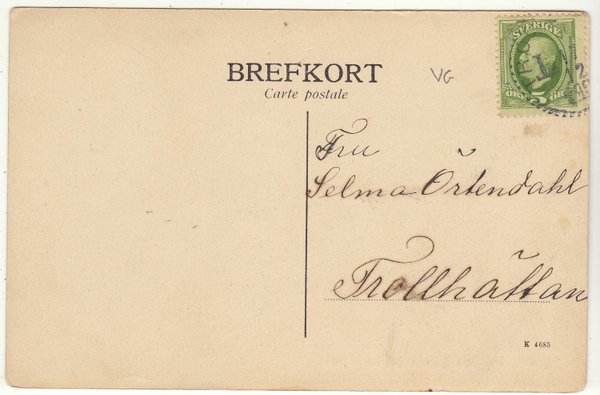 BREFKORT
Carte postale
VG
SVERIGE
5
ÖRE
Fru
Selma Örtendahl
Trollhättan
K 4685